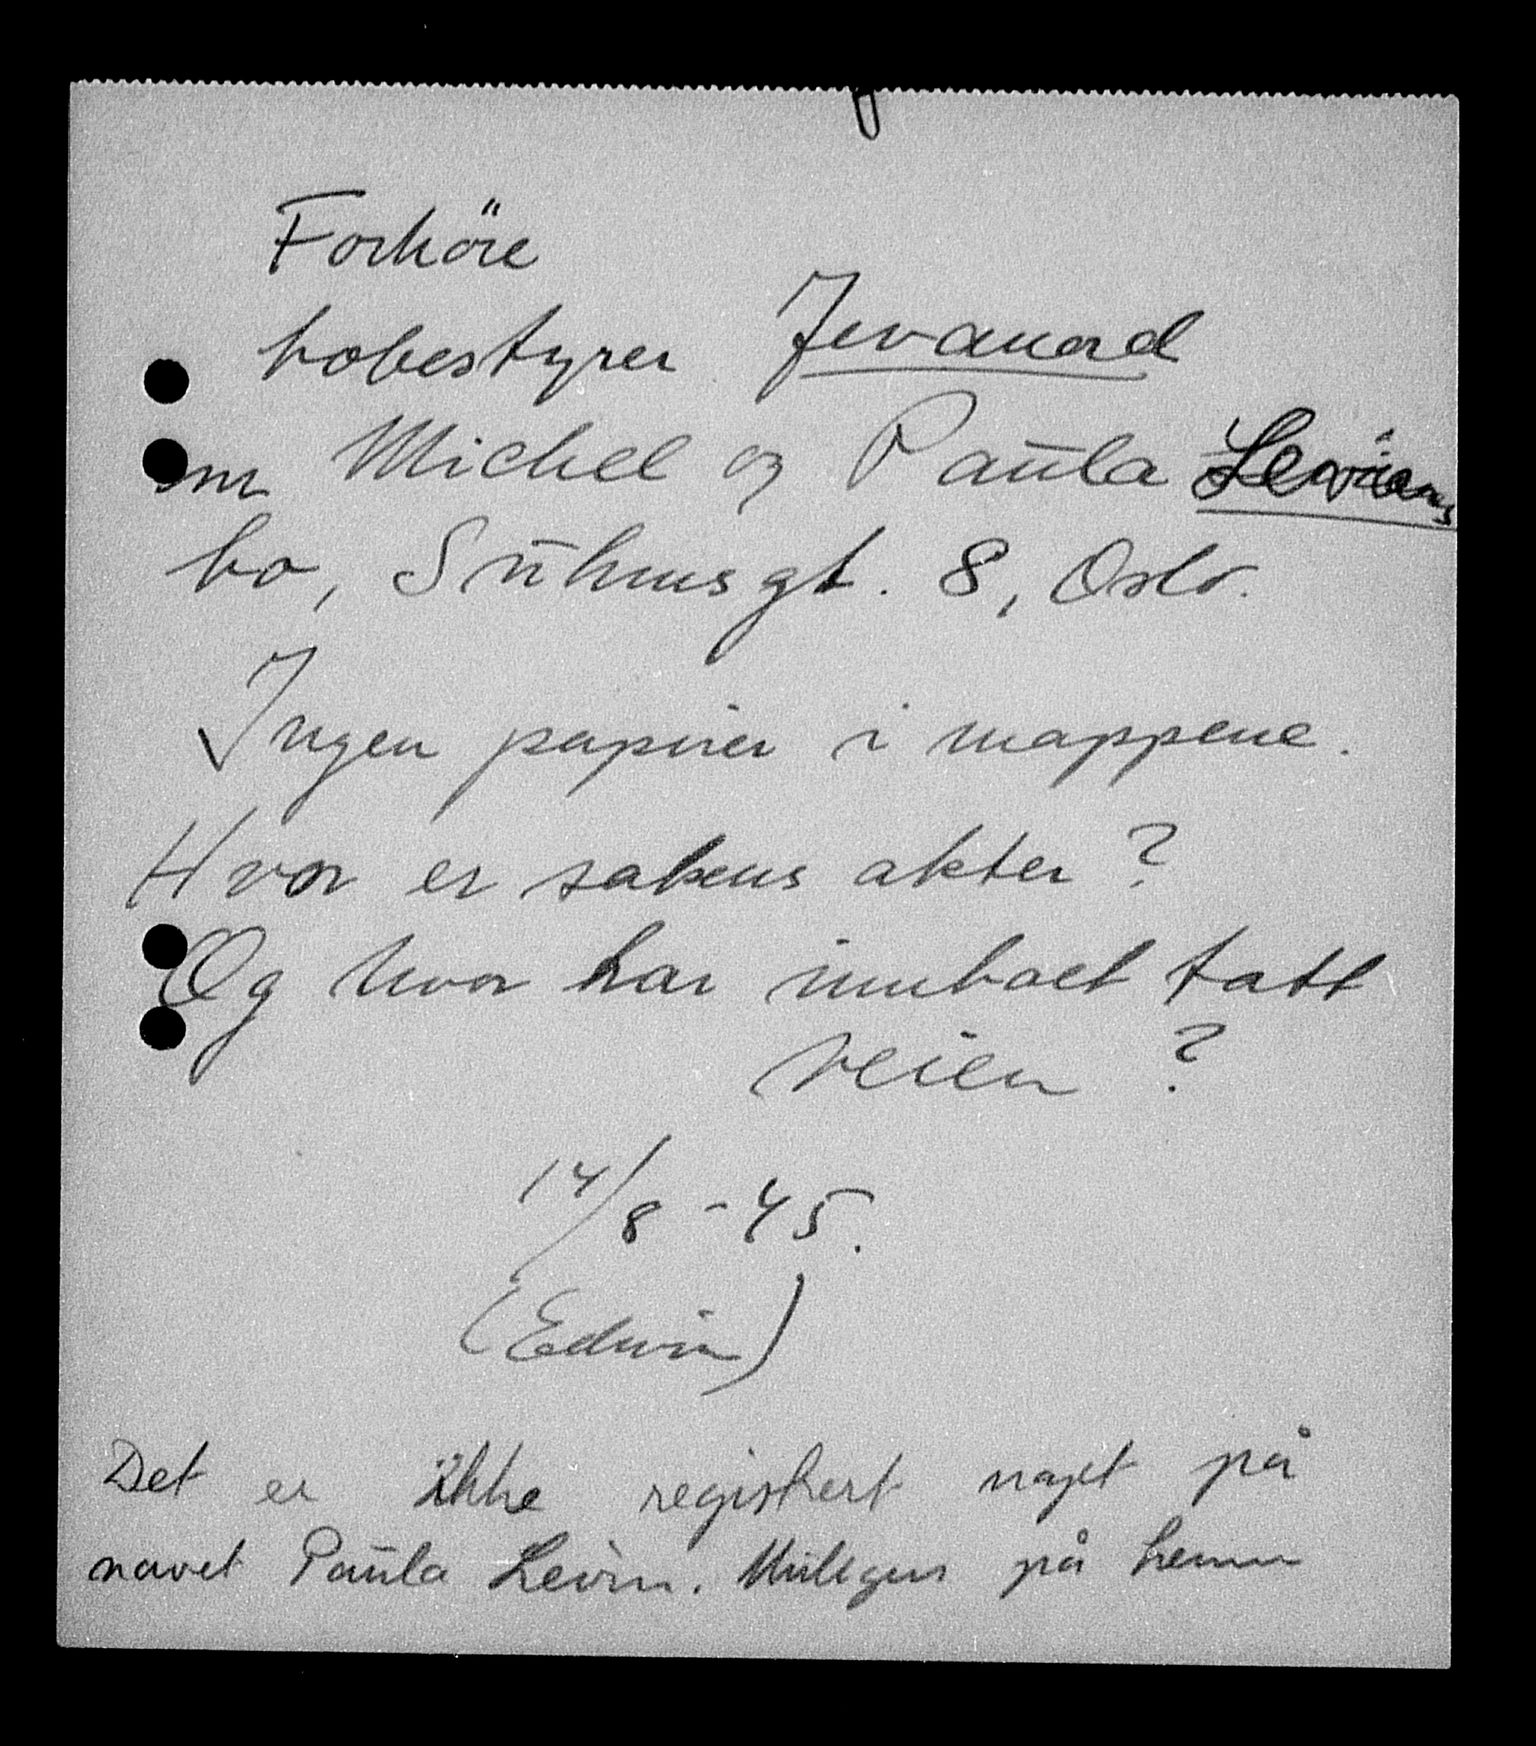 Forhöre
bobestyrer Jevanord
om Michel og Paula Levins
bo, Sühmsgt. 8, Oslo.
Ingen papirer i mappene.
Hvor er sakens akter?
Og hvor har innboet tatt
veien?
14/8 -45.
(Edwin)
Det er ikke registrert noget på
navnet Paula Levin. på